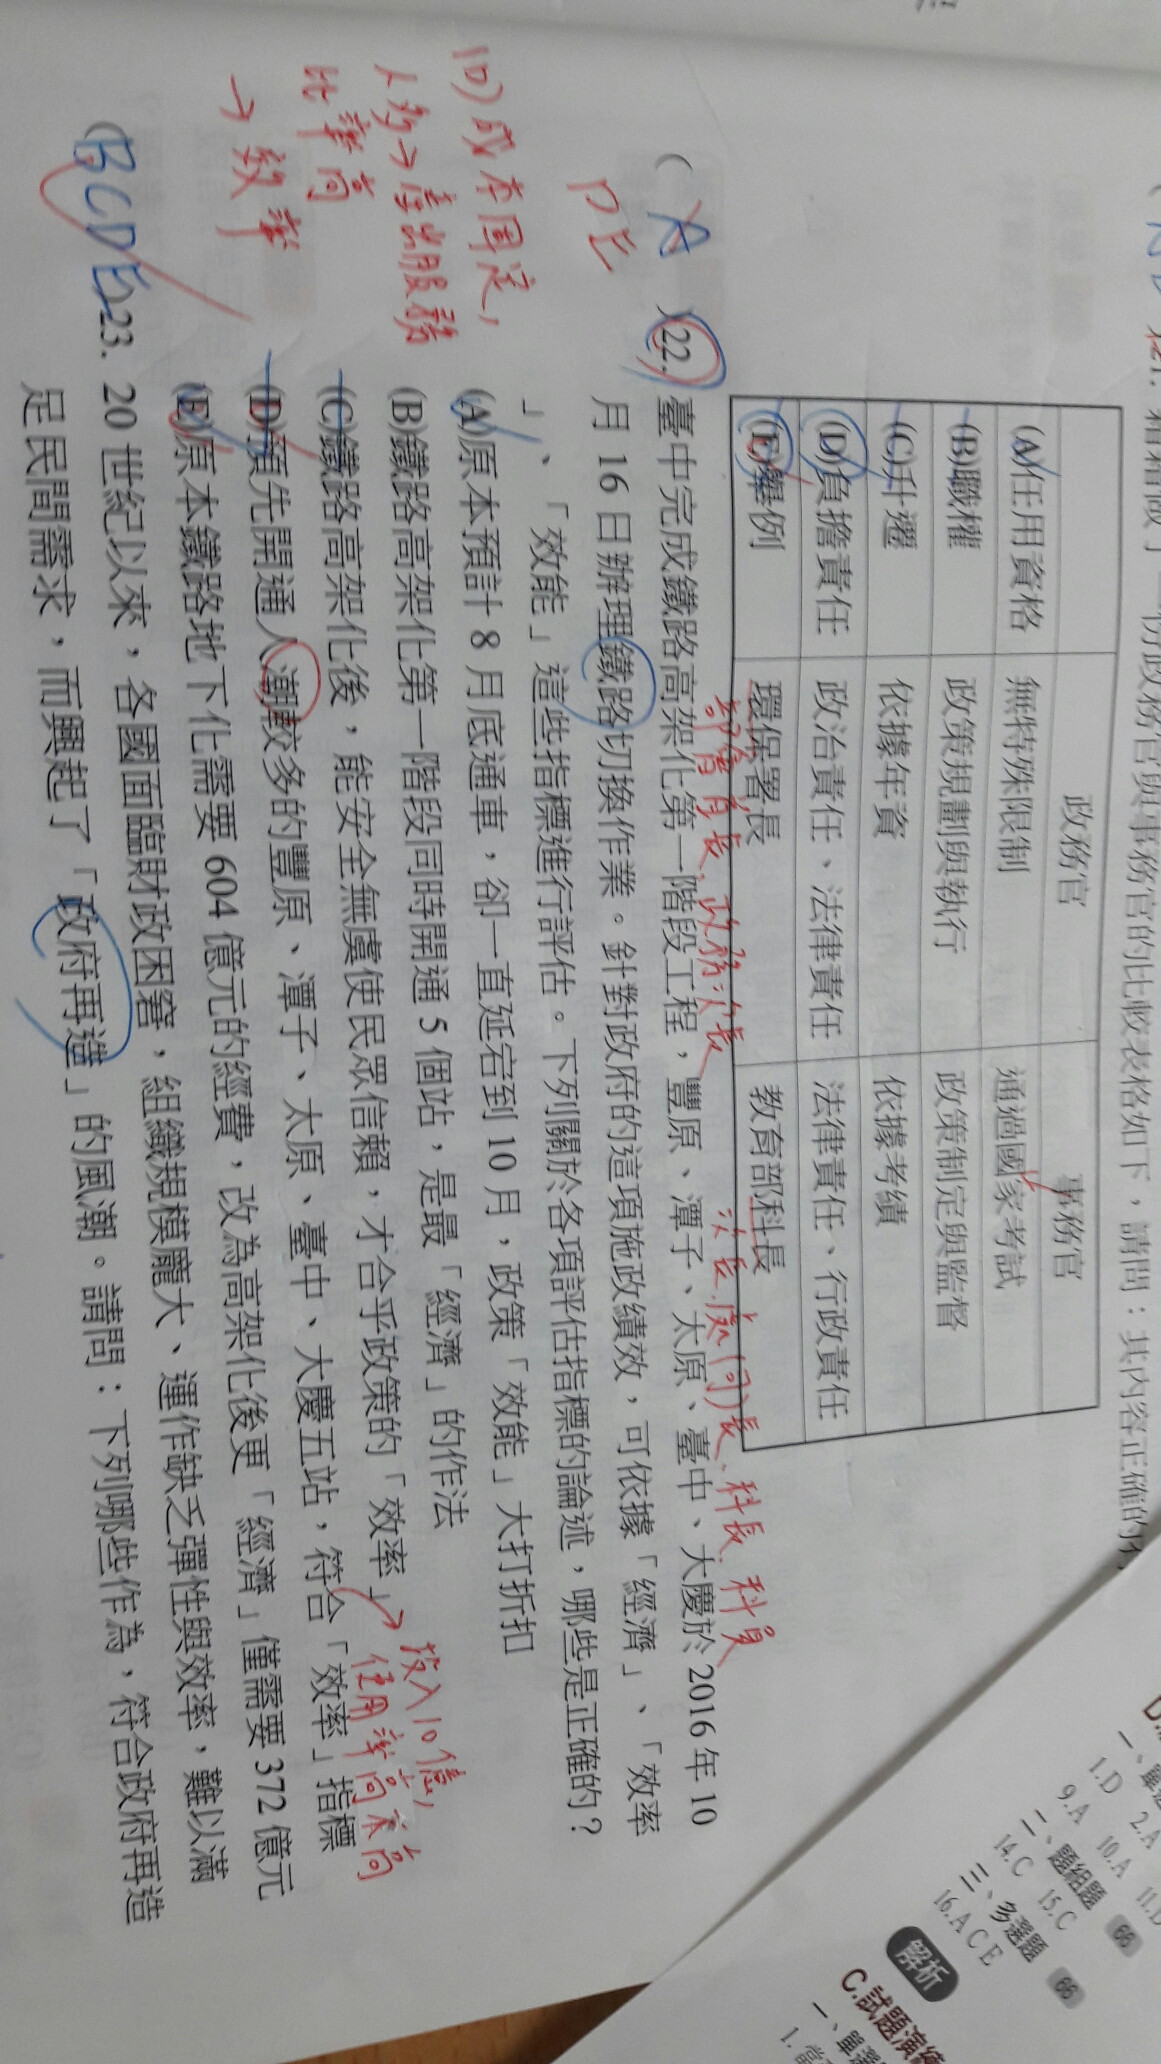 政務官與事務官的比較表格如下，請問：其內容正確的有
政務官 事務官
(A)任用資格 無特殊限制 通過國家考試
(B)職權 政策規劃與執行 政策制定與監督
(C)升遷 依據年資 依據考績
(D)負擔責任 政治責任、法律責任 法律責任、行政責任
(E)舉例 環保署長 教育部科長
部會首長、政務次長
次長、處(司)長、科長、科員
( A )22. 臺中完成鐵路高架化第一階段工程，豐原、潭子、太原、臺中、大慶於 2016 年 10
DE
月 16 日辦理鐵路切換作業。針對政府的這項施政績效，可依據「經濟」、「效率
」、「效能」這些指標進行評估。下列關於各項評估指標的論述，哪些是正確的？
(A)原本預計 8 月底通車，卻一直延宕到 10 月，政策「效能」大打折扣
(B)鐵路高架化第一階段同時開通 5 個站，是最「經濟」的作法
(C)鐵路高架化後，能安全無虞使民眾信賴，才合乎政策的「效率」
→投入10億，
使用率高不高
(D)預先開通人潮較多的豐原、潭子、太原、臺中、大慶五站，符合「效率」指標
(E)原本鐵路地下化需要 604 億元的經費，改為高架化後更「經濟」僅需要 372 億元
(D)成本固定，
人多→產出服務
比率高
→效率
(BCDE)23. 20 世紀以來，各國面臨財政困窘，組織規模龐大、運作缺乏彈性與效率，難以滿
足民間需求，而興起了「政府再造」的風潮。請問：下列哪些作為，符合政府再造
1.D 2.A
9.A 10.A 11.D
二、題組題 66
14.C 15.C
三、多選題 66
16.A C E
解析
C.試題演練
一、單選
1.當